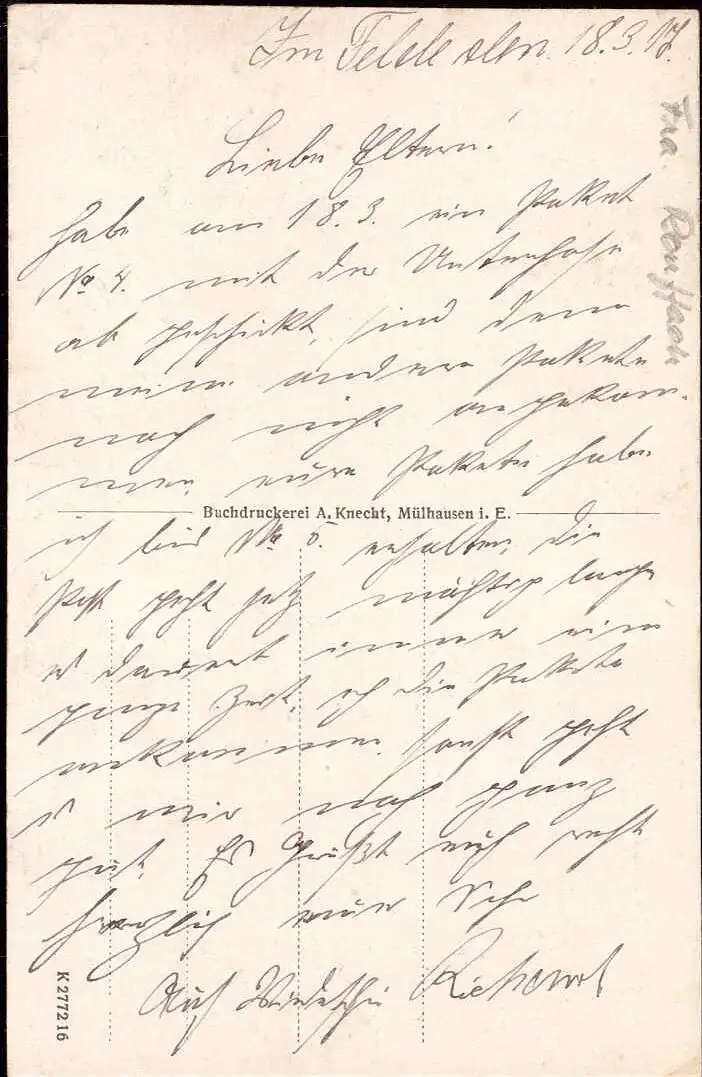 Im Felde den 18.3.17.
Liebe Eltern!
habe am 18.3. ein Paket
No 4. mit der Unterhose
ab geschickt, sind denn
meine andere Pakete
noch nicht angekom-
men, eure Pakete habe
Buchdruckerei A. Knecht, Mülhausen i. E.
ich bis No 5. erhalten, die
Post geht jetz mächtig lange
es dauert immer eine
ganze Zeit, eh die Pakete
ankommen. sonst geht
es mir noch ganz
gut. Es Grüßt euch recht
herzlich euer
Auf Wiedersehn Richard
K 277216
Fra